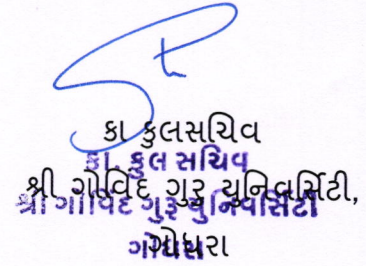 કા કુલસચિવ
કા. કુલ સચિવ
શ્રી ગોવિંદ ગુરુ યુનિવર્સિટી,
શ્રી ગોવિંદ ગુરૂ યુનિવર્સિટી
ગોધરા
ગોધરા